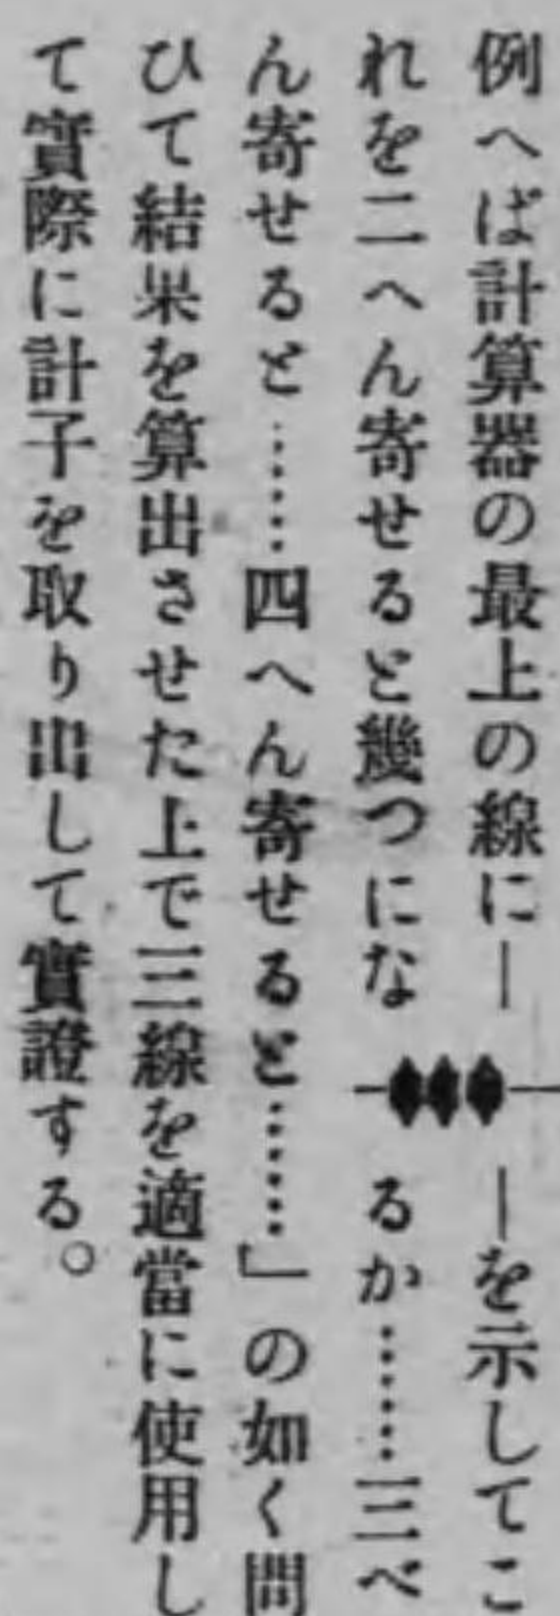 例へば計算器の最上の線に――を示してこ
れを二へん寄せると幾つになるか……三べ
ん寄せると……四へん寄せると……」の如く問
ひて結果を算出させた上で三線を適當に使用し
て實際に計子を取り出して實證する。